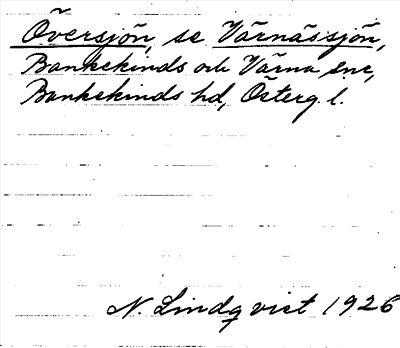 Översjön, se Värnässjön,
Bankekinds och Värna snr,
Bankekinds hd, Österg. l.
N. Lindqvist 1926